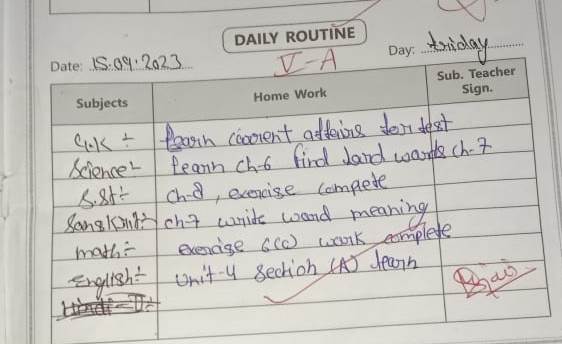 DAILY ROUTINE
Date: 15.09.2023 V-A Day: friday
Subjects Home Work Sub. Teacher Sign.
G.K ÷ Learn coorent affairs for test
Science ÷ Learn ch-6 find hard wards ch-7
S.St ÷ ch-8, exercise compete
Sanskrit ÷ ch-7 write word meaning
math ÷ exercise 6(c) work complete
English ÷ Unit-4 Section (A) learn
Hindi - II ÷